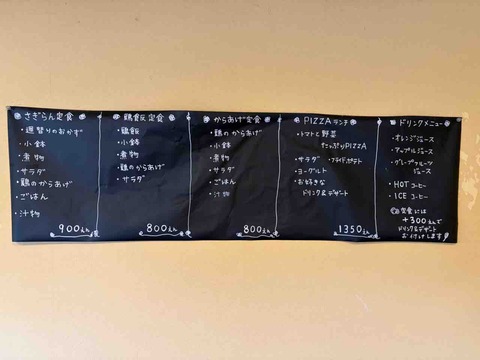 さぎらん定食
・週替りのおかず
・小鉢
・煮物
・サラダ
・鶏のからあげ
・ごはん
・汁物
900えん
鶏飯定食
・鶏飯
・小鉢
・煮物
・鶏のからあげ
・サラダ
800えん
からあげ定食
・鶏のからあげ
・小鉢
・煮物
・サラダ
・ごはん
・汁物
800えん
PIZZAランチ
・トマトと野菜
たっぷりPIZZA
・サラダ ・フライドポテト
・ヨーグルト
・お好きな
ドリンク&デザート
1350えん
ドリンクメニュー
・オレンジジュース
・アップルジュース
・グレープフルーツ
ジュース
・HOTコーヒー
・ICEコーヒー
定食には
+300えんで
ドリンク&デザート
お付けします